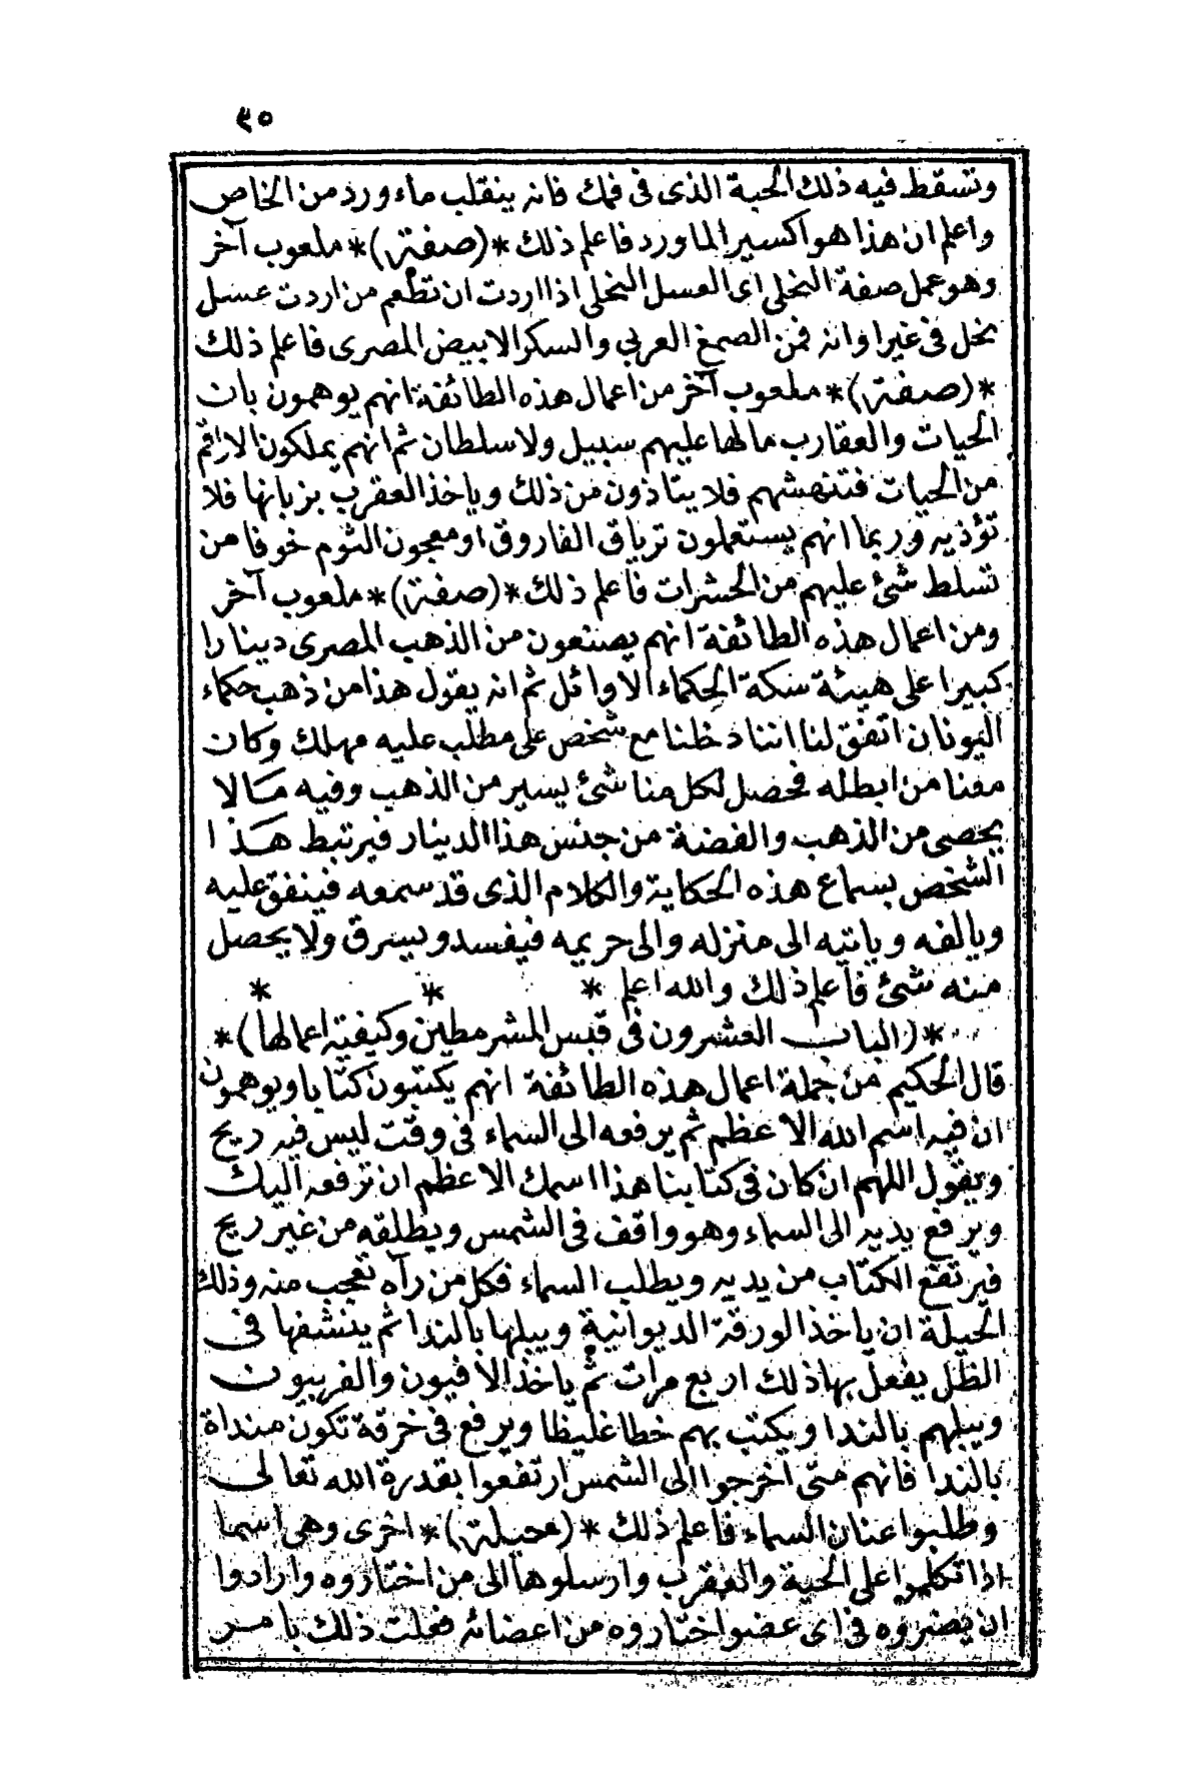 ٤٥
وتسقط فيه ذلك الحبة الذى فى فمك فانه ينقلب ماء ورد من الخاص
واعلم ان هذا هو اكسير الماورد فاعلم ذلك *(صفة)* ملعوب آخر
وهو عمل صفة النخلى اى العسل النخلى اذا اردت ان تطعم من اردت عسل
نخل فى غير اوانه فمن الصمغ العربي والسكر الابيض المصرى فاعلم ذلك
*(صفة)* ملعوب آخر من اعمال هذه الطائفة انهم يوهمون بان
الحيات والعقارب مالها عليهم سبيل ولا سلطان ثم انهم يملكون الاراقم
من الحيات فتنهشهم فلا يتاذون من ذلك وياخذ العقرب بزبانها فلا
تؤذيه وربما انهم يستعملون ترياق الفاروق او معجون الثوم خوفا من
تسلط شئ عليهم من الحشرات فاعلم ذلك *(صفة)* ملعوب آخر
ومن اعمال هذه الطائفة انهم يصنعون من الذهب المصرى دينارا
كبيرا على هيئة سكة الحكماء الاوائل ثم انه يقول هذا من ذهب حكماء
اليونان اتفق لنا اننا دخلنا مع شخص على مطلب عليه مهلك وكان
معنا من ابطله فحصل لكل منا شئ يسير من الذهب وفيه مالا
يحصى من الذهب والفضة من جنس هذا الدينار فيرتبط هذا
الشخص بسماع هذه الحكاية والكلام الذى قد سمعه فينفق عليه
ويالفه وياتيه الى منزله والى حريمه فيفسد ويسرق ولا يحصل
منه شئ فاعلم ذلك والله اعلم * * *
*(الباب العشرون فى قبس المشرمطين وكيفية اعمالها)*
قال الحكيم من جملة اعمال هذه الطائفة انهم يكتبون كتابا ويوهمون
ان فيه اسم الله الاعظم ثم يرفعه الى السماء فى وقت ليس فيه ريح
ويقول اللهم ان كان فى كتابنا هذا اسمك الاعظم ان ترفعه اليك
ويرفع يديه الى السماء وهو واقف فى الشمس ويطلقه من غير ريح
فيرتفع الكتاب من يديه ويطلب السماء فكل من رآه تعجب منه وذلك
الحيلة ان ياخذ الورقة الديوانية ويبلها بالندا ثم ينشفها فى
الظل يفعل بها ذلك اربع مرات ثم ياخذ الافيون والفربيون
ويبلهم بالندا ويكتب بهم خطا غليظا ويرفع فى خرقة تكون منداة
بالندا فانهم متى اخرجوا الى الشمس ارتفعوا بقدرة الله تعالى
وطلبوا عنان السماء فاعلم ذلك *(حيلة)* اخرى وهى اسما
اذا تكلموا على الحية والعقرب وارسلوها الى من اختاروه وارادوا
ان يضروه فى اى عضو اختاروه من اعضائه فعلت ذلك بامر